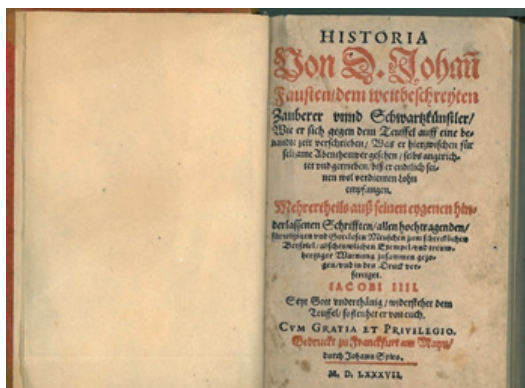 HISTORIA
Von D. Johañ
Fausten/dem weitbeschreyten
Zauberer vnnd Schwartzkünstler/
Wie er sich gegen dem Teuffel auff eine be-
nandte zeit verschrieben/ Was er hierzwischen für
seltzame Abentheuwer gesehen/ selbs angerich-
tet vnd getrieben/ biß er endtlich sei-
nen wol verdienten Lohn
empfangen.
Mehrertheils auß seinen eygenen hin-
derlassenen Schrifften/ allen hochtragenden/
fürwitzigen vnd Gottlosen Menschen zum schrecklichen
Beyspiel/ abscheuwlichen Exempel/ vnd treuw-
hertziger Warnung zusammen gezo-
gen/ vnd in den Druck ver-
fertiget.
IACOBI IIII.
Seyt Gott vnderthänig/ widerstehet dem
Teuffel/ so fleuhet er von euch.
CVM GRATIA ET PRIVILEGIO.
Gedruckt zu Franckfurt am Mayn/
durch Johann Spies.
M. D. LXXXVII.